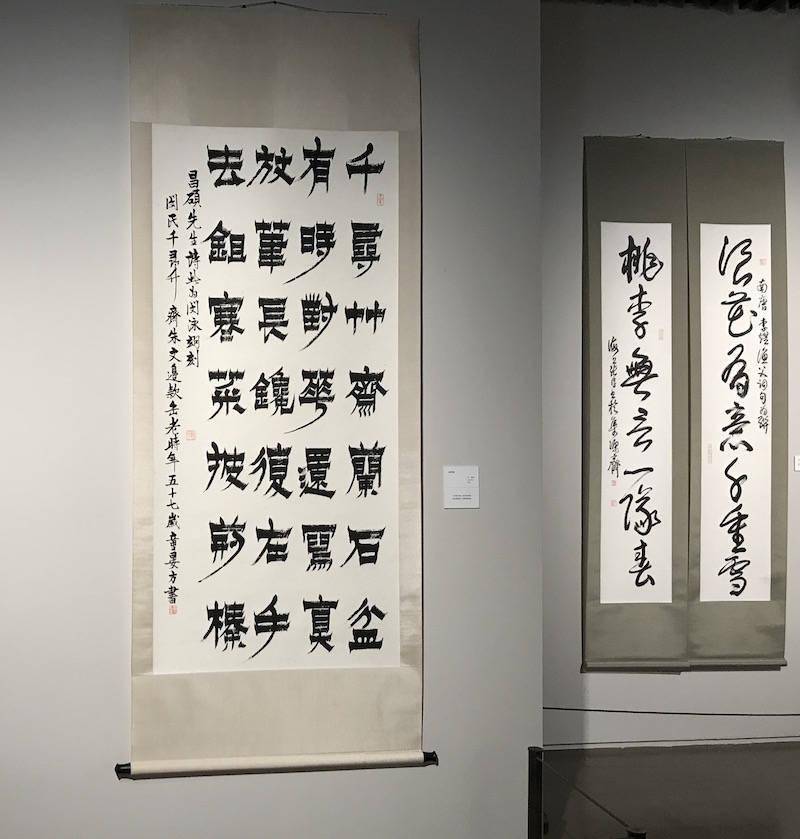 千尋艸齋蘭石盆
有時對華還寫真
放筆長鑱復左手
去鉏寒菜披荊榛
昌碩先生詩為閔泳翊刻
千尋竹齋朱文邊款缶老時年五十七歲童晏方書
浪花有意千重雪
南唐李煜漁父詞句為聯
桃李無言一隊春